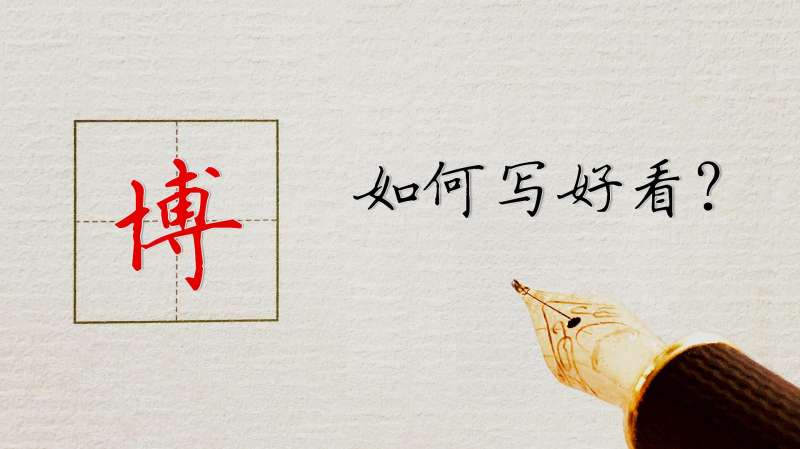 博
如何写好看?